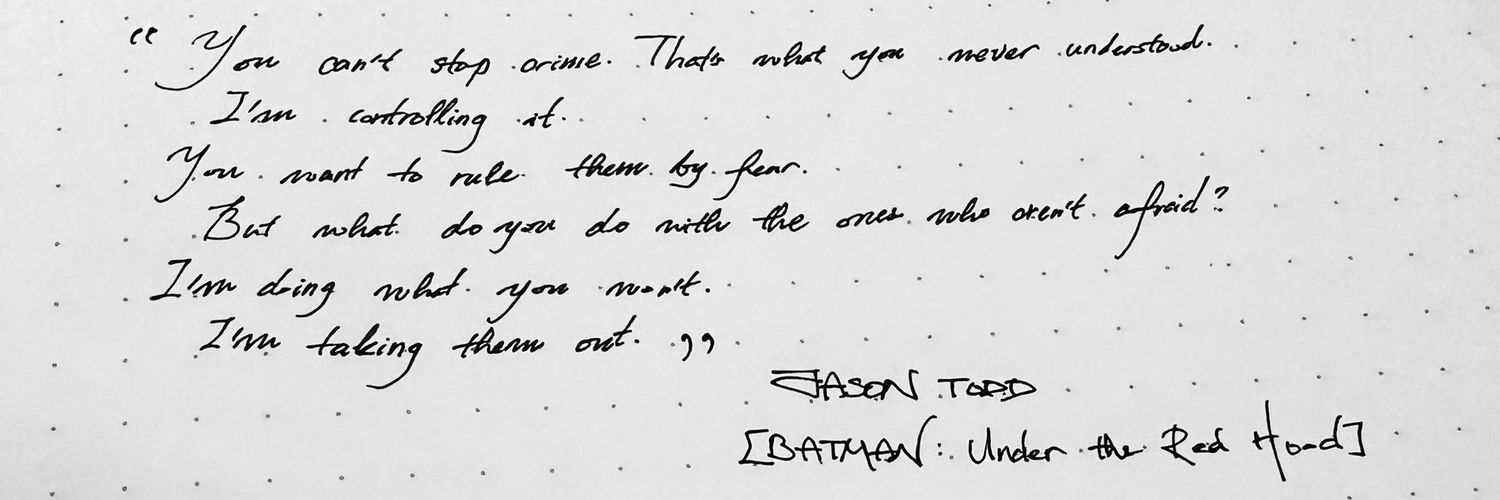 “ You can't stop crime. That's what you never understood.
I'm controlling it.
You want to rule them by fear.
But what do you do with the ones who aren't afraid?
I'm doing what you won't.
I'm taking them out. ”
JASON TODD
[BATMAN: Under the Red Hood]